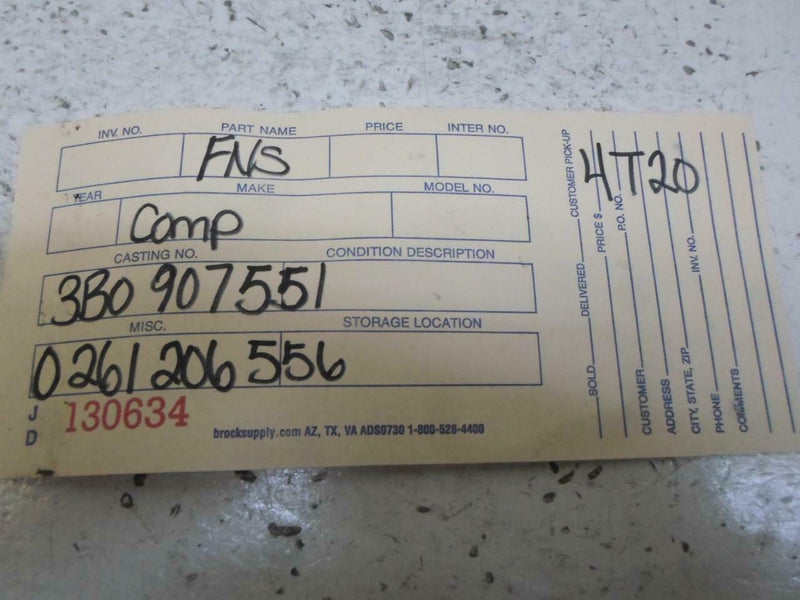 INV. NO. PART NAME PRICE INTER NO.
FNS
YEAR MAKE MODEL NO.
Comp
CASTING NO. CONDITION DESCRIPTION
3B0 907551
MISC. STORAGE LOCATION
0261206556
J D 130634
brocksupply.com AZ, TX, VA ADS0730 1-800-528-4400
SOLD DELIVERED CUSTOMER PICK-UP
PRICE $
P.O. NO.
CUSTOMER
ADDRESS
CITY, STATE, ZIP INV. NO.
PHONE
COMMENTS
4T20